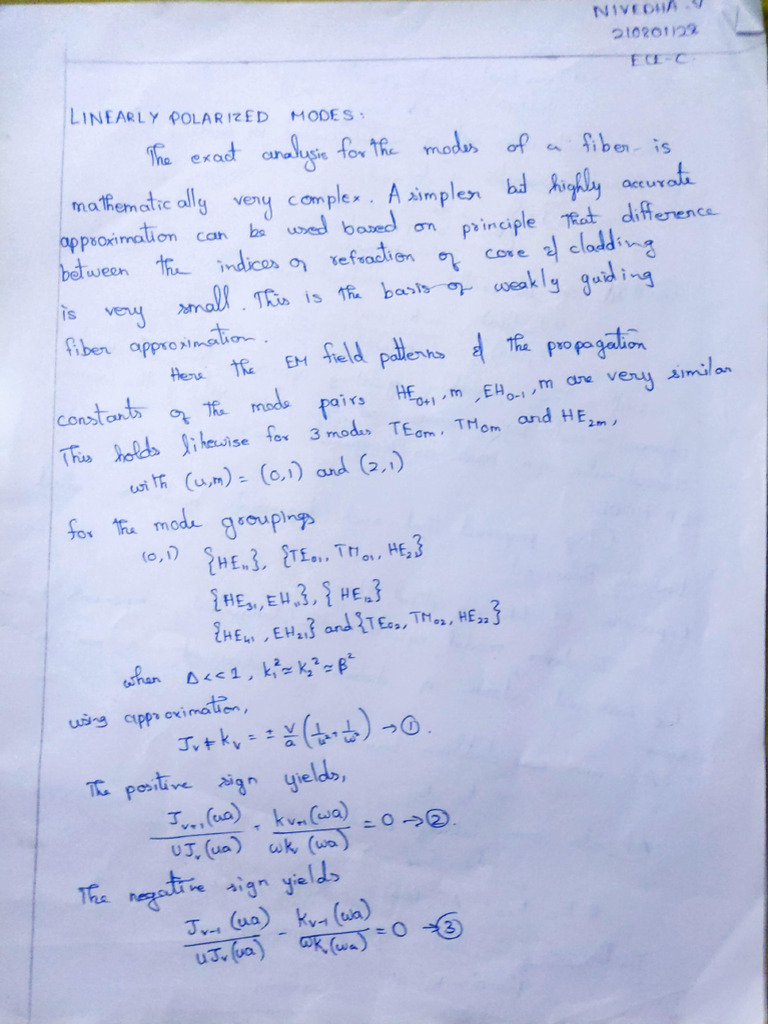 NIVEDHA.V
210801122
ECE-C
LINEARLY POLARIZED MODES:
The exact analysis for the modes of a fiber is
mathematically very complex. A simpler but highly accurate
approximation can be used based on principle that difference
between the indices of refraction of core & cladding
is very small. This is the basis of weakly guiding
fiber approximation.
Here the EM field patterns & the propagation
constants of the mode pairs HE₀₊₁,m, EH₀₋₁,m are very similar
This holds likewise for 3 modes TE₀m, TM₀m and HE₂m,
with (υ,m) = (0,1) and (2,1)
for the mode groupings
(0,1) {HE₁₁}, {TE₀₁, TM₀₁, HE₂}
{HE₃₁, EH₁₁}, {HE₁₂}
{HE₄₁, EH₂₁} and {TE₀₂, TM₀₂, HE₂₂}
when Δ<<1, k₁² ≃ k₂² ≃ β²
using approximation,
Jᵥ + kᵥ = ± v/a (1/u² + 1/ω²) → ①.
The positive sign yields,
Jᵥ₊₁(ua)/UJᵥ(ua) + kᵥ₊₁(ωa)/ωkᵥ(ωa) = 0 → ②.
The negative sign yields
Jᵥ₋₁(ua)/uJᵥ(ua) - kᵥ₋₁(ωa)/ωkᵥ(ωa) = 0 → ③